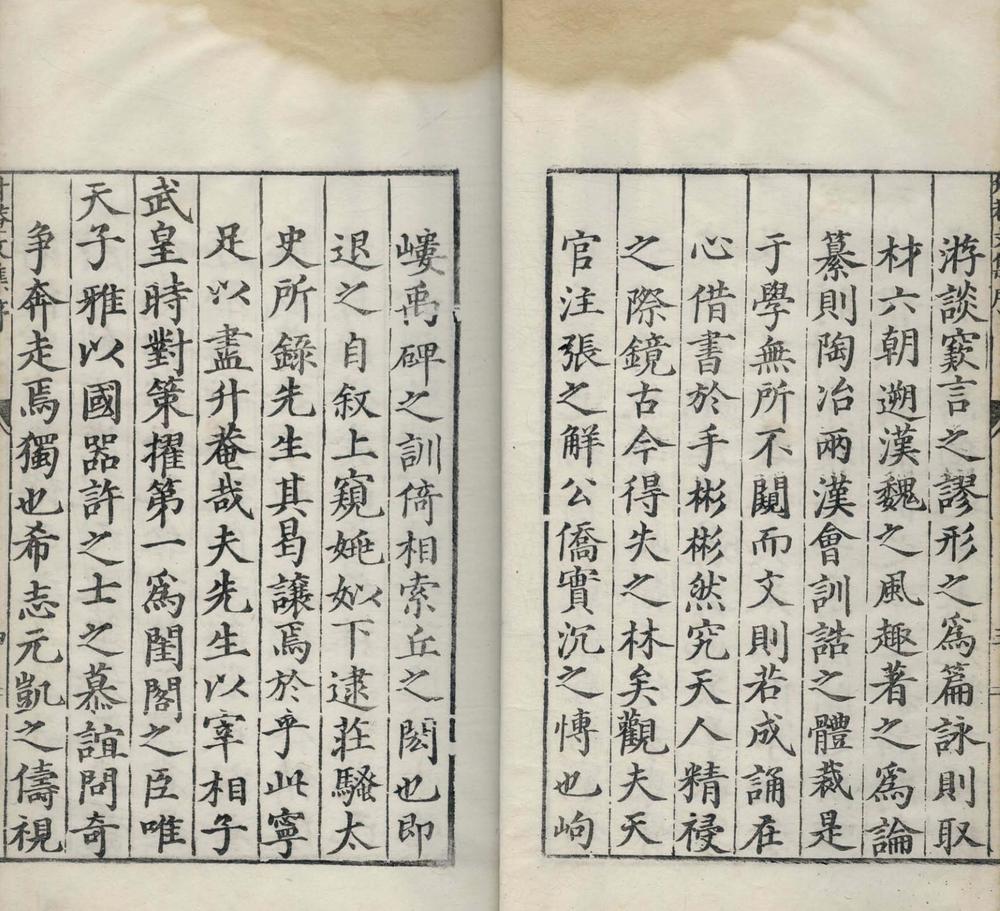 游談窾言之謬形之爲篇詠則取
材六朝遡漢魏之風趣著之爲論
纂則陶冶兩漢會訓誥之體裁是
于學無所不闚而文則若成誦在
心借書於手彬彬然究天人精祲
之際鏡古今得失之林矣觀夫天
官注張之解公僑實沉之慱也岣
嶁禹碑之訓倚相索丘之閎也即
退之自叙上窺姚姒下逮莊騷太
史所錄先生其曷讓焉於乎此寧
足以盡升菴哉夫先生以宰相子
武皇時對策擢第一爲閨閤之臣唯
天子雅以國器許之士之慕誼問奇
争奔走焉獨也希志元凱之儔視